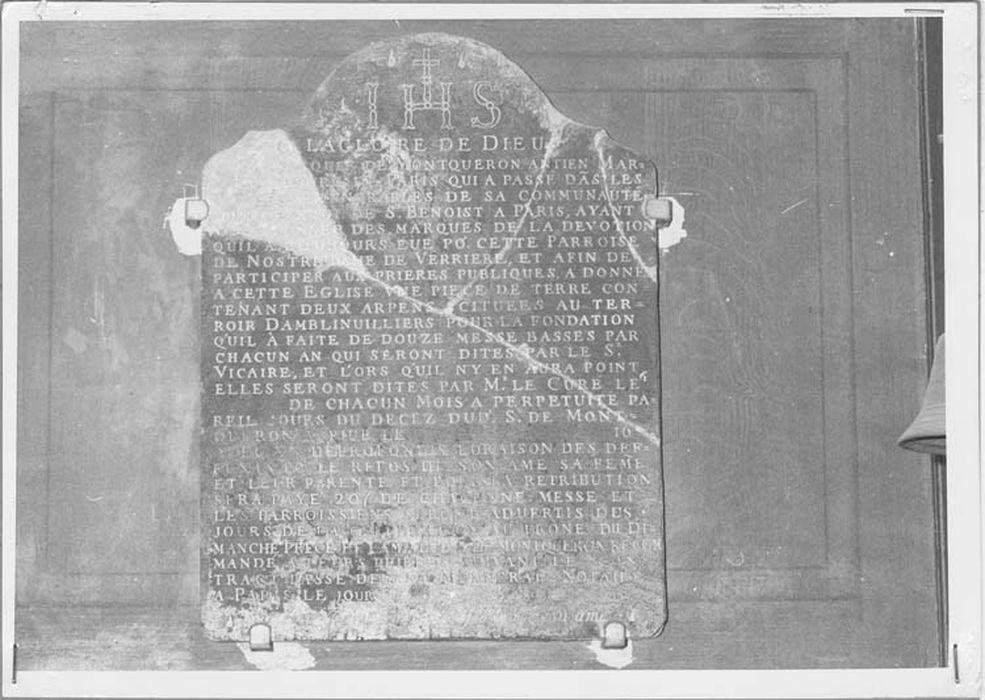 IHS
LA GLOIRE DE DIEU
DE MONTQUERON ANTIEN MAR=
QUI A PASSE DÃS LES
DE SA COMMUNAUTÉ
DE S. BENOIST A PARIS, AYANT
DES MARQUES DE LA DEVOTION
QU'IL A TOUJOURS EUE PO. CETTE PARROISE
DE NOSTRE DAME DE VERRIERE, ET AFIN DE
PARTICIPER AUX PRIERES PUBLIQUES, A DONNE
A CETTE EGLISE VNE PIECE DE TERRE CON
TENANT DEUX ARPENS SCITUEES AU TER=
ROIR DAMBLINUILLIERS POUR LA FONDATION
QU'IL À FAITE DE DOUZE MESSE BASSES PAR
CHACUN AN QUI SERONT DITES PAR LE Sr.
VICAIRE, ET L'ORS QU'IL N'Y EN AURA POINT
ELLES SERONT DITES PAR Mr. LE CURE LE
DE CHACUN MOIS A PERPETUITE PA
REIL JOURS DU DECEZ DUD. S. DE MONT=
QUERON ARIUE LE 16
DEPROFONDIS LORAISON DES DEF=
LE REPOS DE SON AME SA FEME
ET LEUR PARENTE ET POUR LA RETRIBUTION
SERA PAYE 20s DE CHACUNE MESSE ET
LES PARROISSIENS SERONT ADUERTIS DES
JOURS DE LA AU PRONE DU DI
MANCHE PRECEDT LAMADE DE MONTQUERON RECOM
MANDE A LEURS PRIERES SUIVANT LE CON
TRACT PASSE DEVANT NOTAIRE
A PARIS LE JOUR